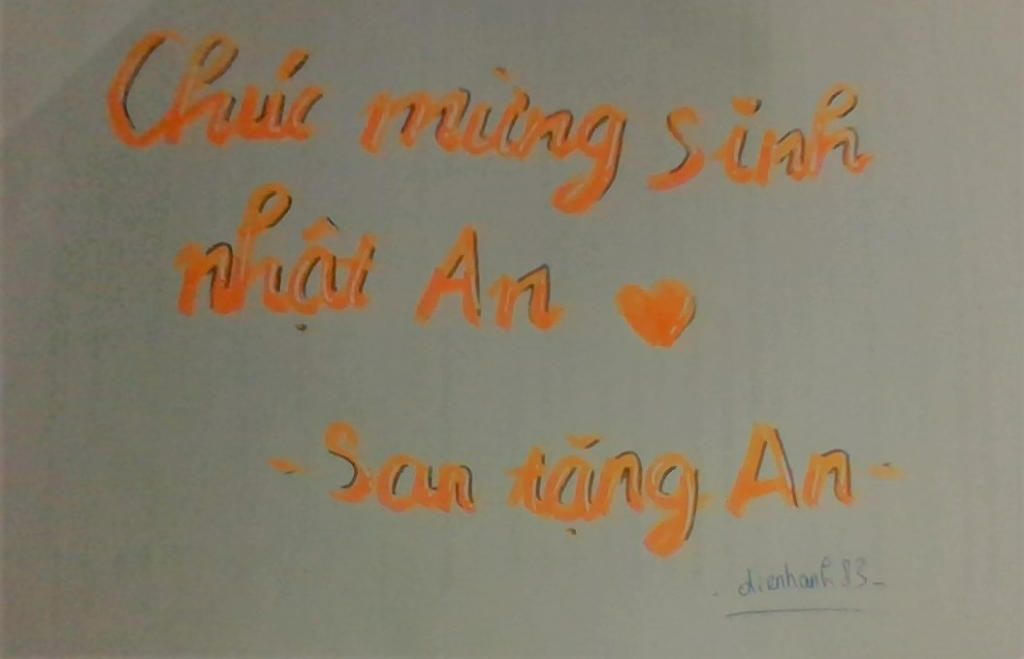 Chúc mừng sinh
nhật An
- San tặng An -
dienhanh83